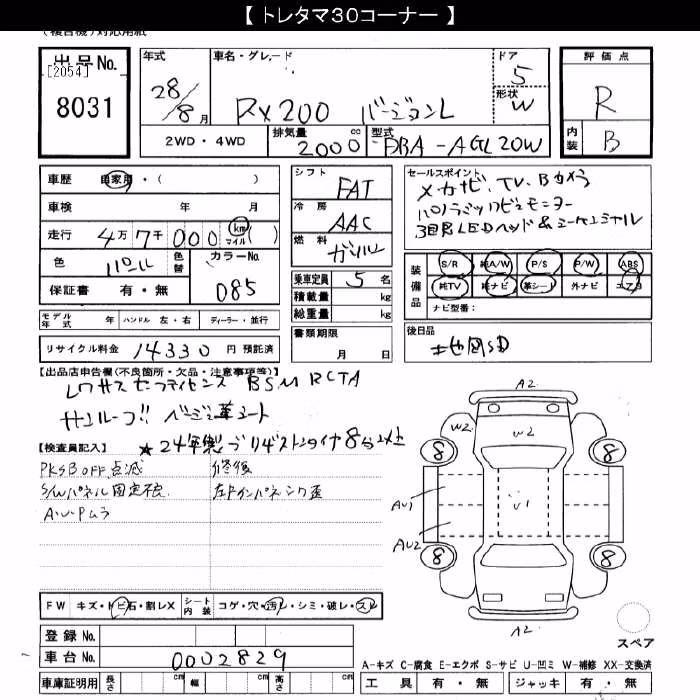 【 トレタマ30コーナー 】
(複合機)対応用紙
出品No. [2054] 8031
年式 28/8月
車名・グレード RX200 バージョンL
ドア 5
形状 W
評価点 R
内装 B
2WD・4WD
排気量 2000 cc
型式 DBA-AGL20W
車歴 自家用・( )
車検 年 月
走行 4万7千000 km マイル ( )
色 パール 色替 カラーNo. 085
保証書 有・無
シフト FAT
冷房 AAC
燃料 ガソリン
乗車定員 5 名
積載量 kg
総重量 kg
セールスポイント
メカナビ、TV、Bカメラ
パノラミックビューモニター
3眼LEDヘッド&シーケンシャル
装備品 S/R 純A/W P/S P/W ABS
純TV 純ナビ 革シート 外ナビ エアB
ナビ型番:
モデル年式 年 ハンドル 左・右 ディーラー・並行
リサイクル料金 14330 円 預託済
書類期限 月 日
後日品
地図SD
【出品店申告欄(不良箇所・欠品・注意事項等)】
レクサスセーフティセンス BSM RCTA
サンルーフ!! ベージュ革シート
★24年製ブリヂストンタイヤ8分以上
【検査員記入】
PKSB OFF点滅 修復
S/Wパネル固定不良 左Fインパネンク歪
A・U・Pムラ
A2
W2 W2
8 8
AU1 U1
AU2
8 8
A2
スペア
FW キズ・トビ石・割レX シート内装 コゲ・穴・汚レ・シミ・破レ・スレ
登録No.
車台No. 0002829
A-キズ C-腐食 E-エクボ S-サビ U-凹ミ W-補修 XX-交換済
車庫証明用 長さ cm 幅 cm 高さ cm
工具 有・無 ジャッキ 有・無